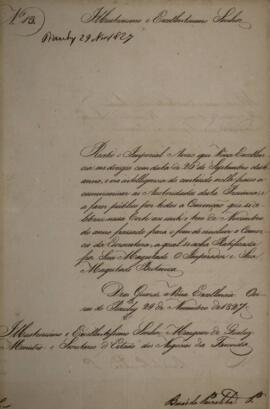 Nº 13.
Illustrissimo e Excellentissimo Senhor
Piauhy 29 Nov 1827
Recebi o Imperial Aviso que Vossa Excellen
cia me dirigio com data de 25 de Septembro deste
anno, e na intelligencia do contheudo nelle passo a
communicar ás Autoridades desta Provincia, e
a fazer publico por todos a Convenção que se ce
lebrou nessa Corte aos vinte e tres de Novembro
do anno passado para o fim de abolir o Commer
cio da Escravatura, a qual se acha Ratificada
por Sua Magestade O Imperador e Sua
Magestade Britanica.
Deos Guarde a Vossa Excellencia. Oei
ras do Piauhy 29 de Novembro de 1827.
Illustrissimo e Excellentissimo Senhor Marquez de Queluz
Ministro e Secretario d'Estado dos Negocios da Fazenda
Barão da Parnahiba P.